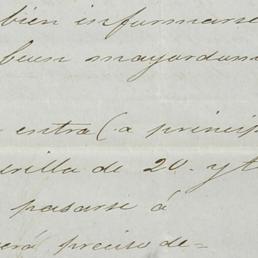 bien informarse
buen mayordomo
entra (a princip
de 20. y t
pasarse á
erá preciso de=